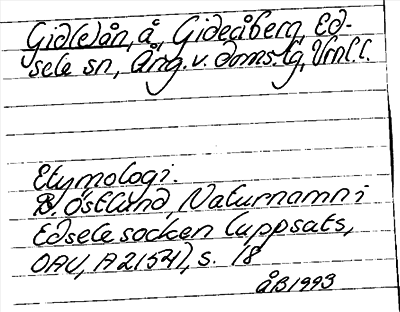 Gid(e)ån, å, Gideåberg, Ed-
sele sn, Ång. v. doms.lg, Vrnl.l.
Etymologi.
B. Östlund, Naturnamn i
Edsele socken (uppsats,
OAU, A 2154), s. 18
ÅB 1993